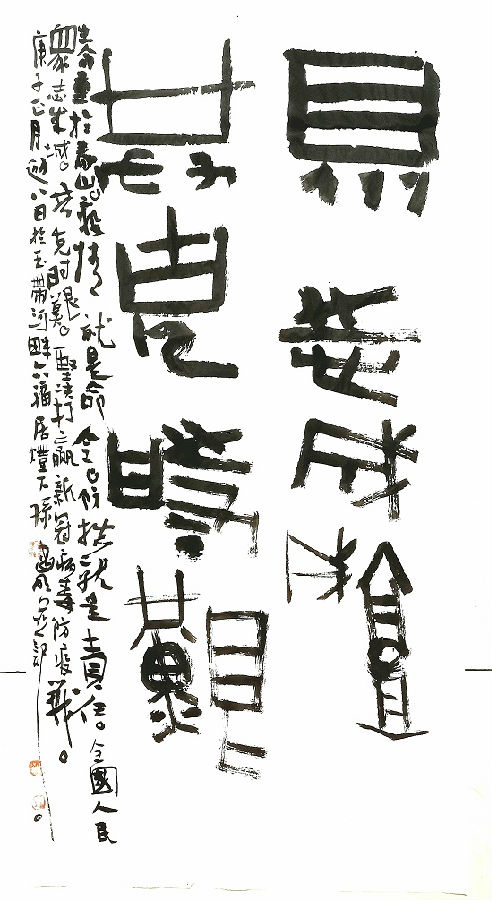 眾志成城
共克時艱
生命重於泰山。疫情就是命令。防控就是責任。全國人民
眾志成城。共克時艱。堅決打贏新冠病毒防疫戰。
庚子正月初八日於玉帶河畔六福居燈下